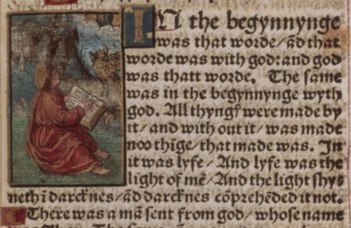 IN the begynnynge
was that worde/ ād that
worde was with god: and god
was thatt worde. The same
was in the begynnynge wyth
god. All thyngſ were made by
it/ and with out it/ was made
noo thīge/ that made was. In
it was lyfe/ And lyfe was the
light of mē/ And the light ſhy-
neth ī darcknes/ ād darcknes cōprehēded it not.
There was a mā ſent from god/ whoſe name